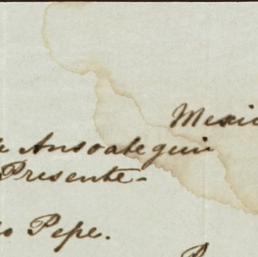 Mexic
e Ansoategui
Presente-
o Pepe.